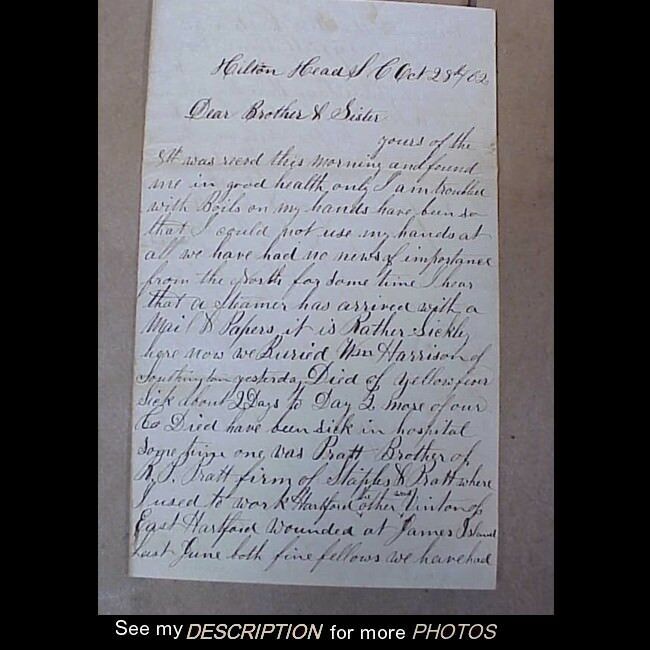 Hilton Head S. C Oct 28th/62
Dear Brother & Sister
yours of the
9th was recvd this morning and found
me in good health only I am troubled
with Boils on my hands have been so
that I could not use my hands at
all we have had no news of importance
from the North for some time I hear
that a Steamer has arrived with a
Mail & Papers it is Rather Sickly
here now we Buried Wm Harrison of
Southington yesterday Died of yellow fever
Sick about 2 Days to Day 2 more of our
Co Died have been sick in hospital
Sometime one was Pratt Brother of
R. P. Pratt firm of Staples & Pratt where
I used to work Hartford other was Vinton of
East Hartford wounded at James Island
last June both fine fellows we have had
See my DESCRIPTION for more PHOTOS